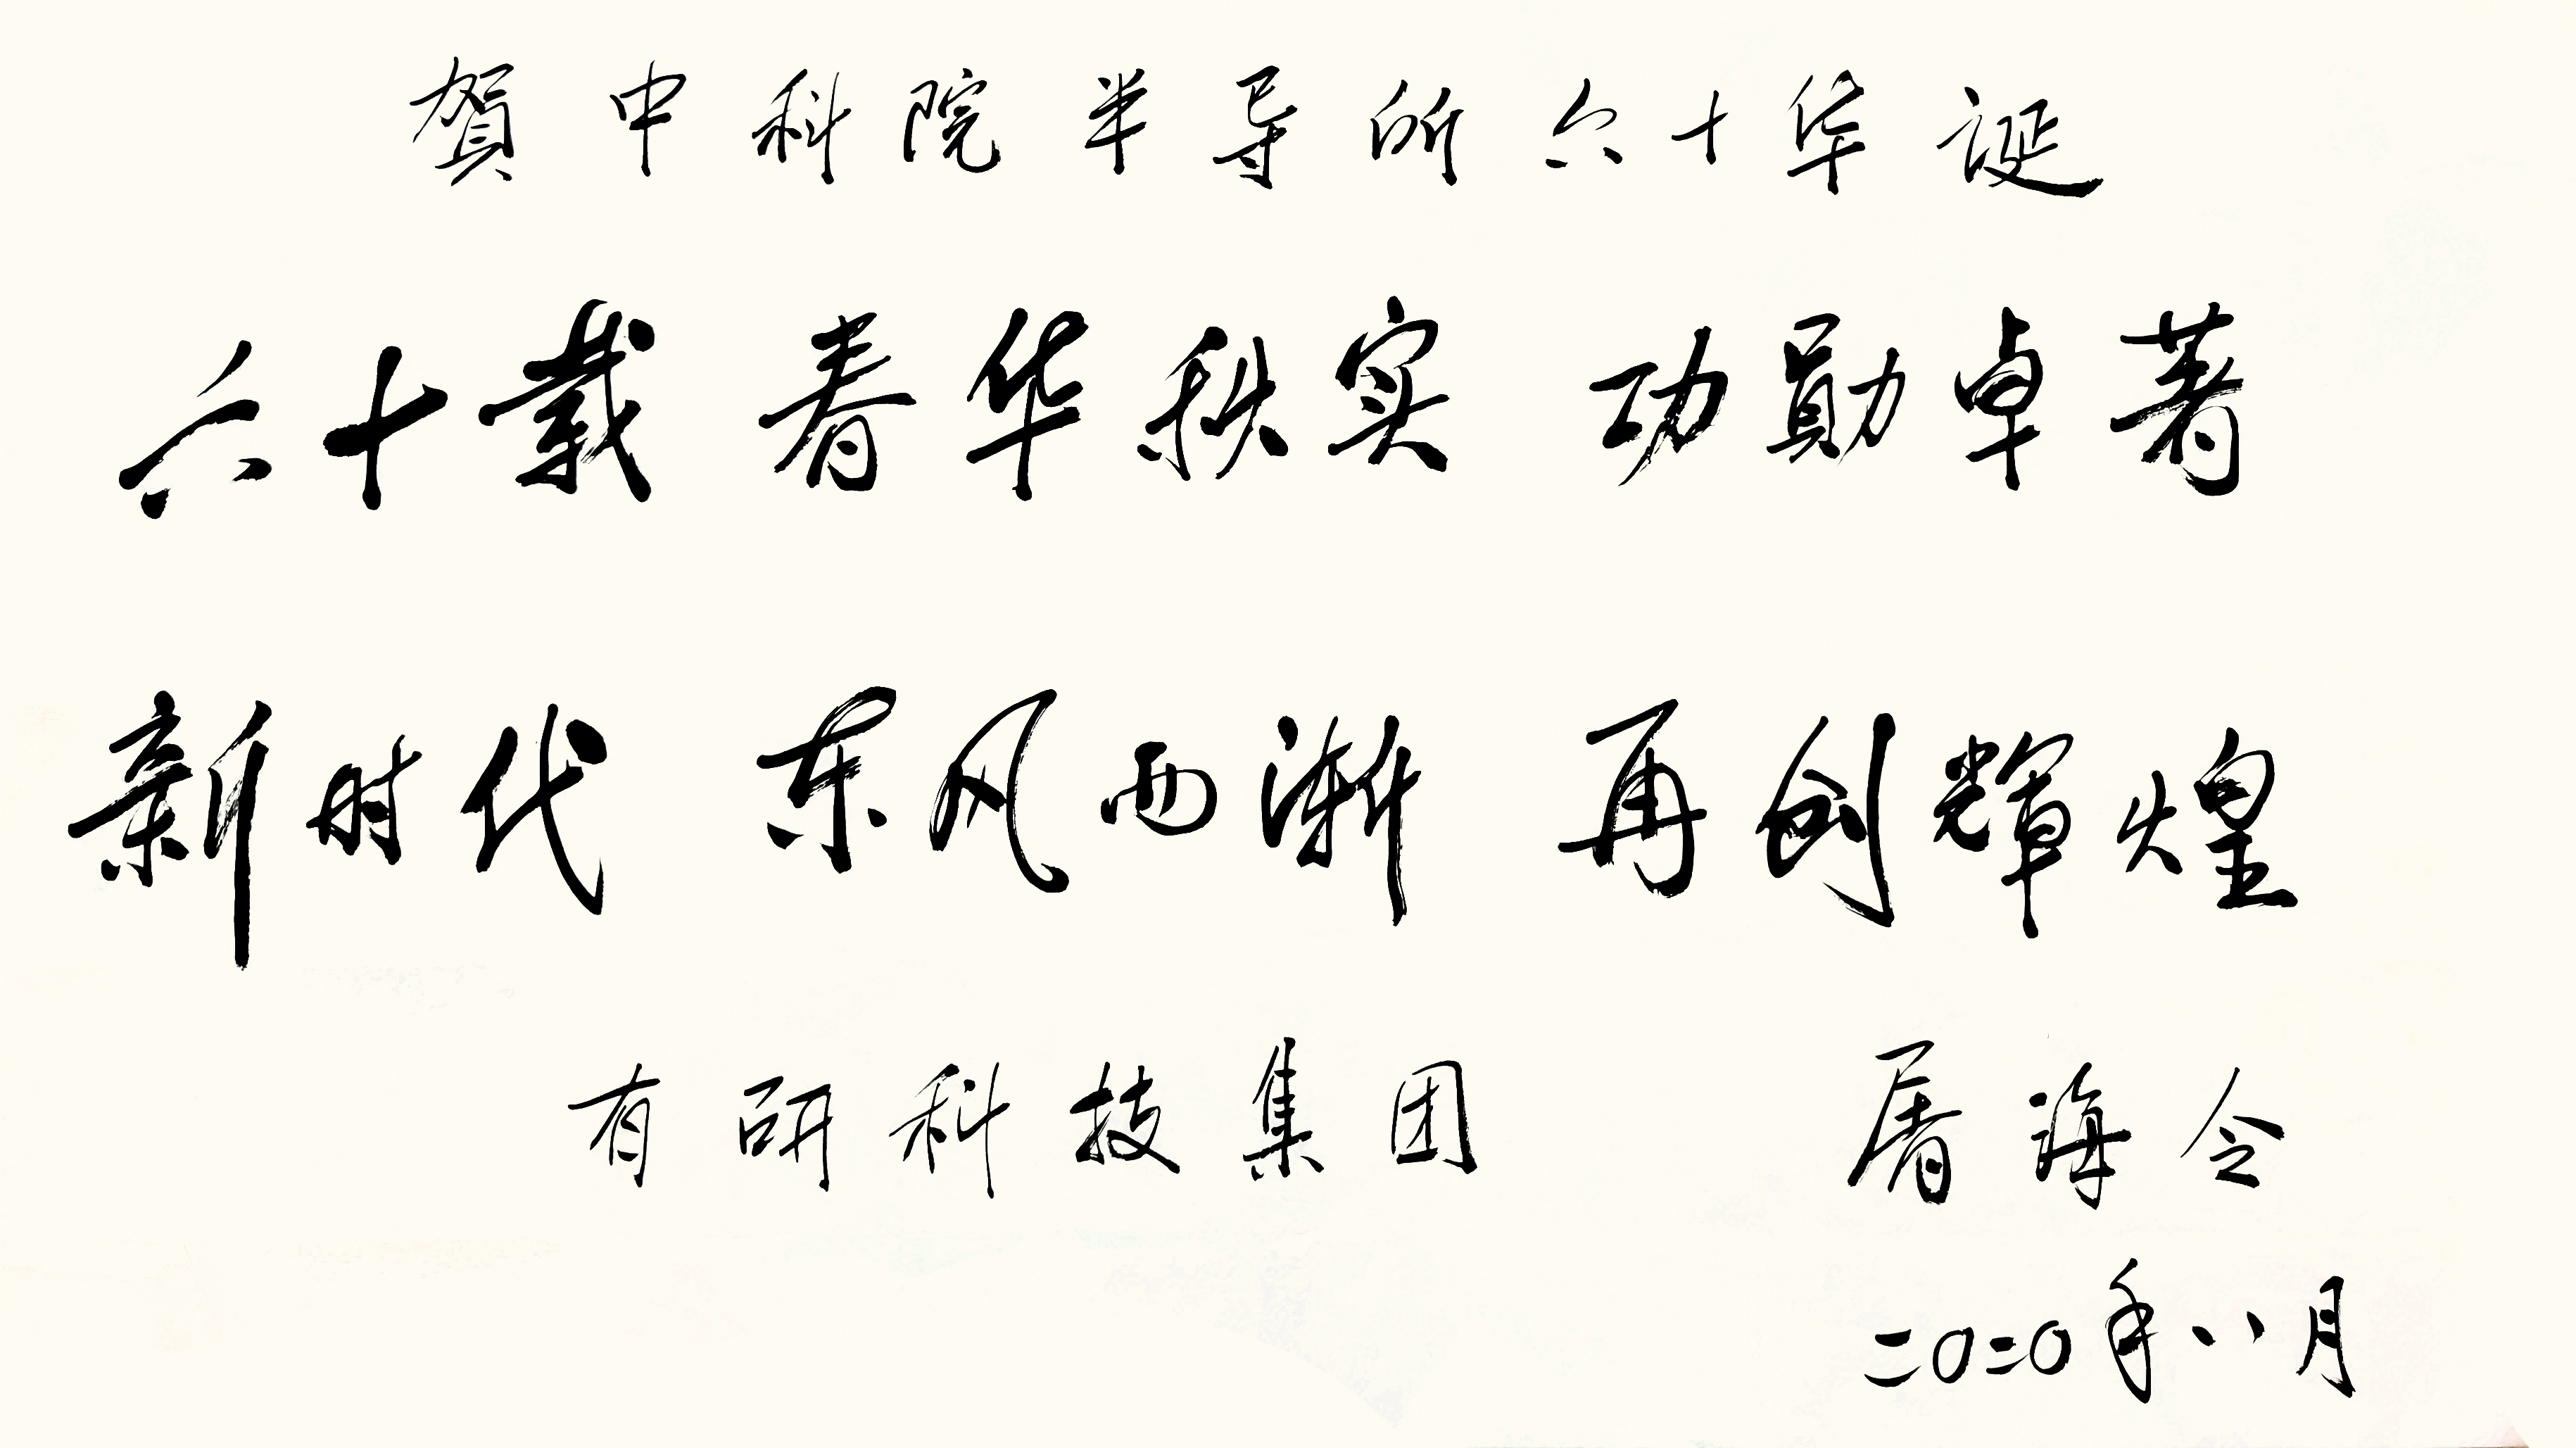 賀中科院半导所六十华诞
六十载 春华秋实 功勋卓著
新时代 东风西渐 再创輝煌
有研科技集团 屠海令
二〇二〇年八月